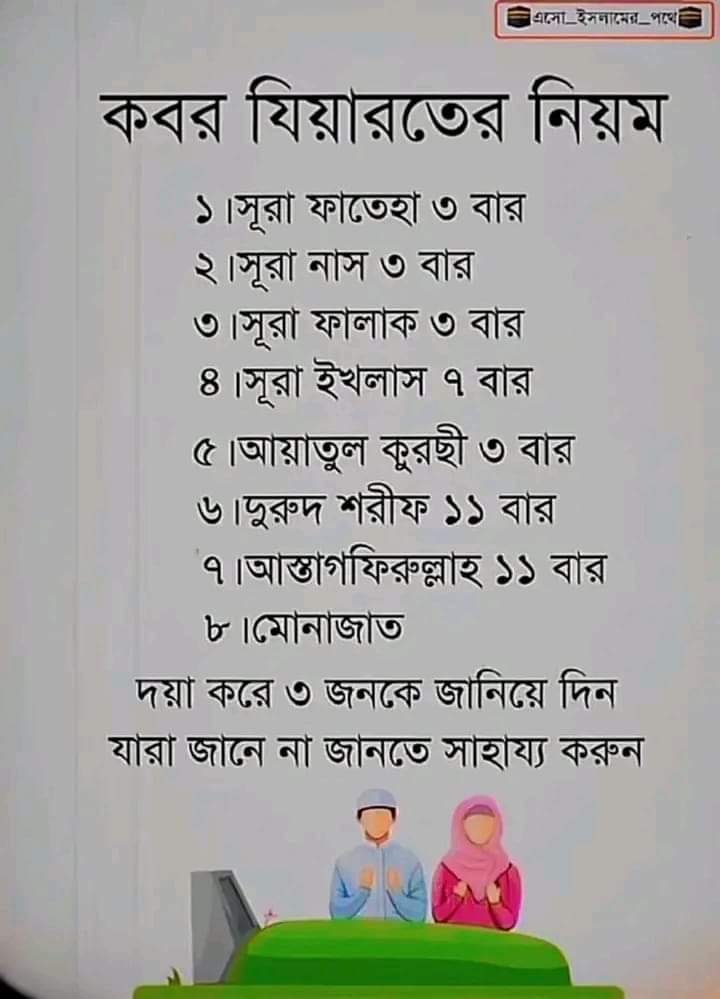 এসো_ইসলামের_পথে
কবর যিয়ারতের নিয়ম
১।সূরা ফাতেহা ৩ বার
২।সূরা নাস ৩ বার
৩।সূরা ফালাক ৩ বার
৪।সূরা ইখলাস ৭ বার
৫।আয়াতুল কুরছী ৩ বার
৬।দুরুদ শরীফ ১১ বার
৭।আস্তাগফিরুল্লাহ ১১ বার
৮।মোনাজাত
দয়া করে ৩ জনকে জানিয়ে দিন
যারা জানে না জানতে সাহায্য করুন